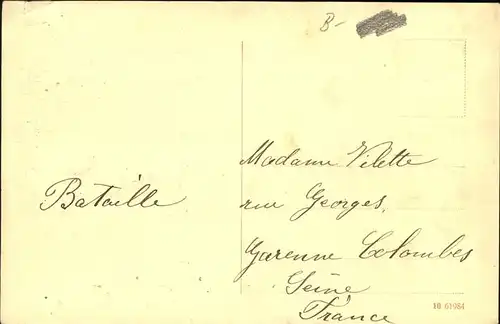 B-
Bataille
Madame Vilette
rue Georges,
Garenne Colombes
Seine
France
10 61984